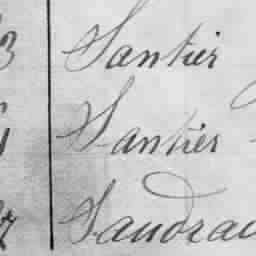 3 Santier
Santier
Sandrau